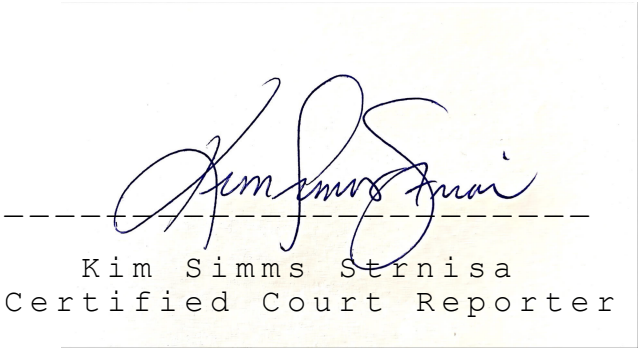 Kim Simms Strnisa
Kim Simms Strnisa
Certified Court Reporter